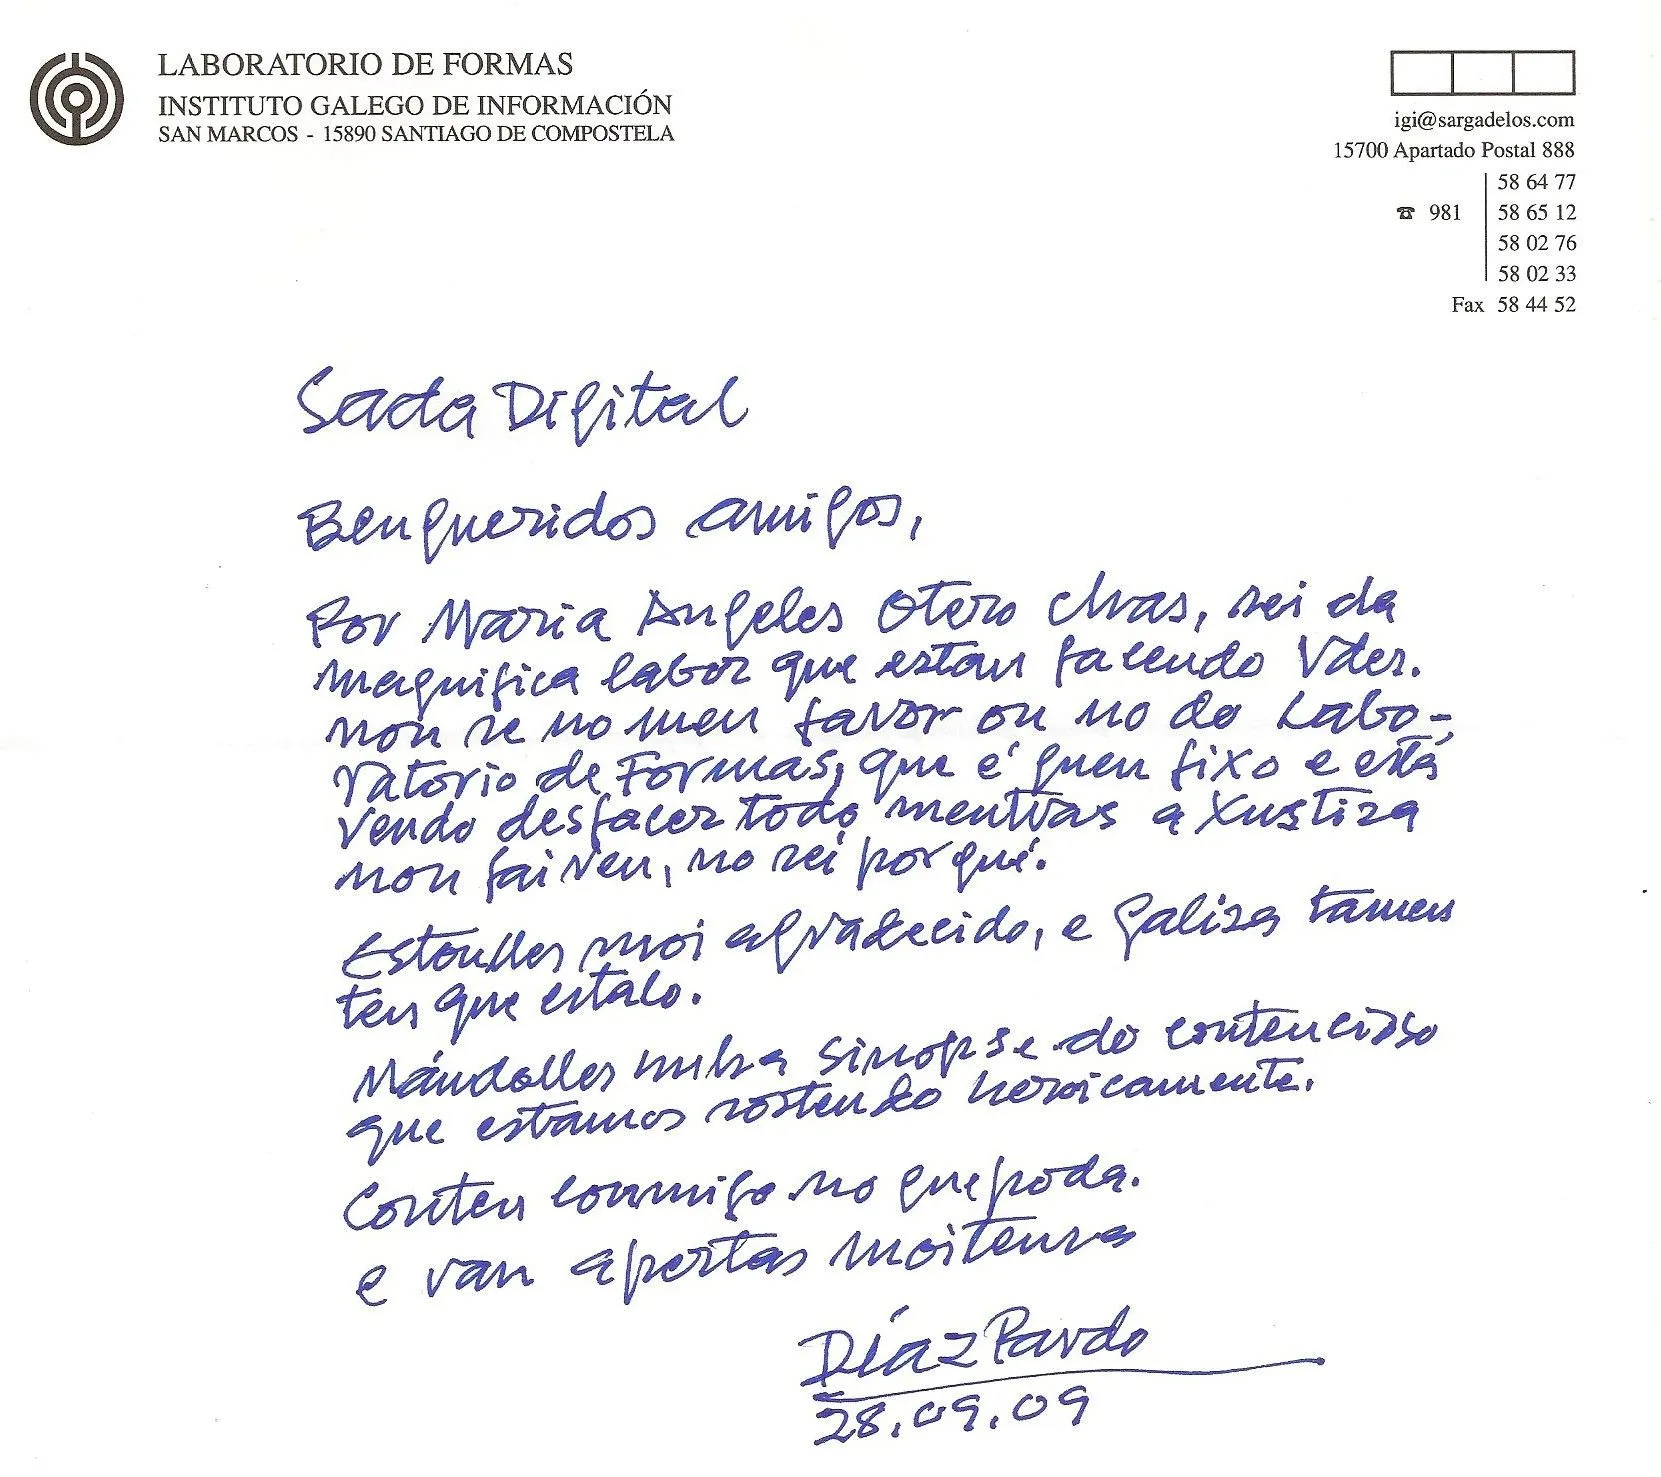 LABORATORIO DE FORMAS
INSTITUTO GALEGO DE INFORMACIÓN
SAN MARCOS - 15890 SANTIAGO DE COMPOSTELA
igi@sargadelos.com
15700 Apartado Postal 888
58 64 77
☎ 981 58 65 12
58 02 76
58 02 33
Fax 58 44 52
Sada Digital
Benqueridos amigos,
Por Maria Angeles Otero Chas, sei da
magnifica labor que estan facendo Vdes.
non se no meu favor ou no do Labo-
ratorio de Formas, que é quen fixo e está
vendo desfacer todo mentras a Xustiza
non fai ren, no sei porqué.
Estoulles moi agradecido, e Galiza tamen
ten que estalo.
Mándolles unha sinopse do contencioso
que estamos sostendo heroicamente.
Conten conmigo no que poda.
e van apertas moitenras
Díaz Pardo
28.09.09